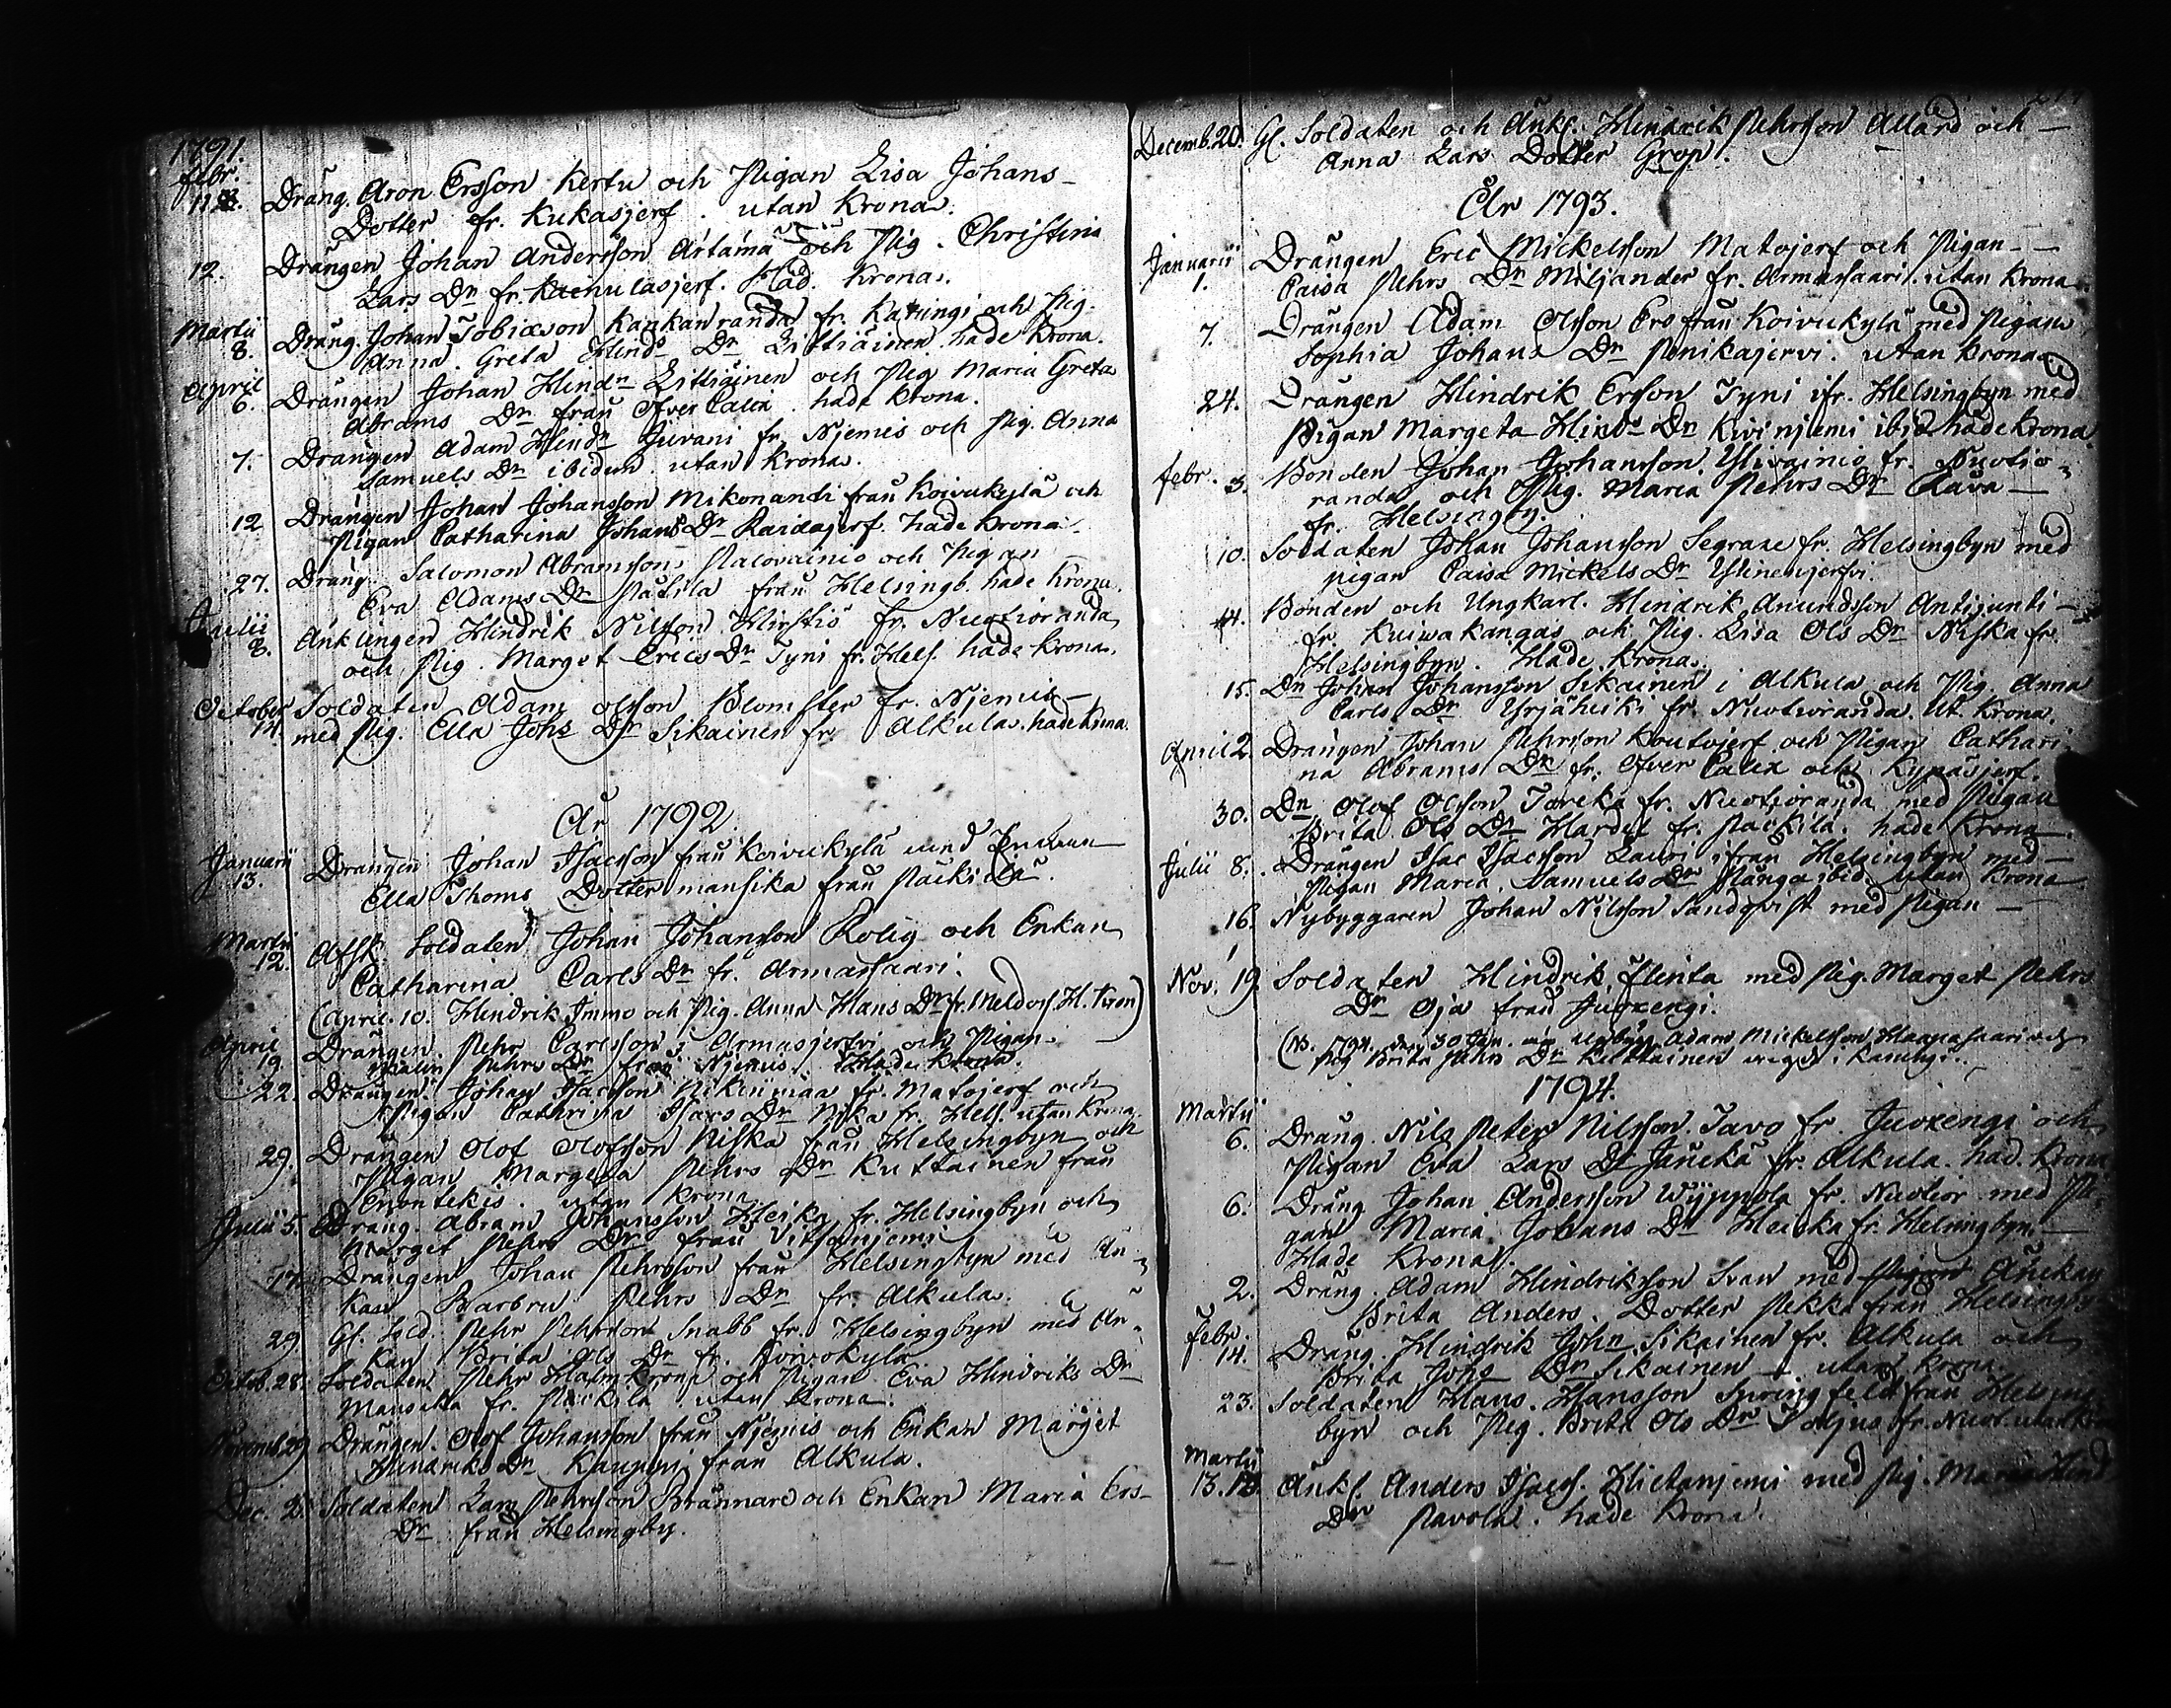 1791.
Febr.
Dräng. Aron Ersson Kertu och Pigan Lisa Johans-
Dotter fr. Kukasjerf. utan Krona.
12. Drängen Johan Andersson Artama och Pig. Christina
Lars Dr fr. Kainulasjerf. Had. Krona.
Martii
8. Dräng. Johan Tobiæson Kankanranda fr. Karungi och Pig.
Anna Greta Hinds Dr Littiäinen hade Krona.
April
6. Drängen Johan Hindn Littiäinen och Pig Maria Greta
Abrams Dr från Öfver Calix. hade Krona.
7. Drängen Adam Hindn Juvani fr. Njemis och Pig. Anna
Samuels Dr ibidem utan Krona.
12 Drängen Johan Johansson Mikonandi från Koivukylä och
Pigan Catharina Johans Dr Raidajerf hade Krona.
27. Dräng. Salomon Abramson Palovainio och Pigan
Eva Adams Dr Patila från Helsingb. hade Krona.
Julii
8. Änklingen Hindrik Nilsson Hirstiö fr. Nuotioranda
och Pig. Marget Erics Dr Tyni fr. Hels. hade Krona.
October
14. Soldaten Adam Olsson Blomster fr. Njemis -
med Pig. Ella Johs Dr Sikainen fr. Alkula. hade Krona.
År 1792
Januarii
13. Drängen Johan Isacsson från Koivukylä med
Ella Thoms Dotter Mansika från Päckilä.
Martii
12. Afsk. Soldaten Johan Johansson Rolig och Enkan
Catharina Carls Dr fr. Armassaari.
(April. 10. Hindrik Immo och Pig. Anna Hans Dr fr. Meldos. H. Kron)
April
19. Drängen Pehr Carlsson Armasjerfvi och Pigan
Malin Pehrs Dr från Njemis. Hade Krona.
22. Drängen Johan Isacsson Nikumaa fr. Matojerf och
Pigan Cathrina Isacs Dr Niska fr. Hels. utan Krona.
29. Drängen Olof Olofsson Niska från Helsingbyn och
Pigan Margeta Pehrs Dr Kuttainen från
Enontekis. utan Krona
Julii 5. Dräng. Abram Johansson Heika fr. Helsingbyn och
Marget Pehrs Dr från Vitsanjemi
17. Drängen Johan Pehrsson från Helsingbyn med Än-
kan Barbru Pehrs Dr fr. Alkula.
29 Gl. Sold. Pehr Pehrsson Snabb fr. Helsingbyn med Än-
kan Brita Ols Dr fr. Koivokylä
Octob. 28. Soldaten Pehr Malmkrona och Pigan Eva Hindriks Dr
Mansikka fr. Päckilä utan Krona.
Novemb. 29 Drängen Olof Johansson från Njemis och Enkan Marget
Hindriks Dr Kauppi från Alkula.
Dec. 2. Soldaten Lars Pehrsson Brännare och Enkan Maria Ers-
Dr från Helsingby.
Decemb. 20. Gl. Soldaten och Änkl. Hindrik Pehrsson Allard och -
Anna Lars Dotter Grop.
År 1793.
Januarii
1. Drängen Eric Mickelsson Matojerf och Pigan - -
Caisa Pehrs Dr Miljander fr. Armassaari. utan Krona.
7. Drängen Adam Olsson Ero från Koivukylä med Pigan
Sophia Johans Dr Penikajervi. utan Krona
24. Drängen Hindrik Ersson Tyni ifr. Helsingbyn med
Pigan Margeta Hinds Dr Kivinjemi ibid. hade Krona
Febr. 3. Bonden Johan Johansson Ylivainio fr. Nuotio-
randa och Pig. Maria Pehrs Dr Rava -
fr. Helsingby.
10. Soldaten Johan Johansson Segrare fr. Helsingbyn med
pigan Caisa Mickels Dr Ylinenjerfvi.
14. Bonden och Ungkarl. Hindrik Amundsson Antijunti -
fr. Kuivakangas och Pig. Lisa Ols Dr Niska fr.
Helsingbyn. Hade Krona.
15. Dn Johan Johansson Sikainen i Alkula och Pig. Anna
Carls Dr Yrjäheiki fr. Nuotioranda. Ut. Krona.
April 2. Drängen Johan Pehrsson Koutojerf och Pigan Cathari-
na Abrams Dr fr. Öfver Calix och Kypasjerf.
30. Dn Olof Olsson Tareka fr. Nuotioranda med Pigan
Brita Ols Dr Hardet fr. Päckilä. hade Krona.
Julii 8. Drängen Isac Isacsson Lauri ifrån Helsingbyn med -
Pigan Maria Samuels Dr Ranga ibid. utan Krona
16. Nybyggaren Johan Nilsson Sandqvist med Pigan -
Nov. 19 Soldaten Hindrik Flinta med Pig. Marget Pehrs
Dr Oja från Juoxengi.
(NB. 1794. den 30 Jan. Nybygg. Adam Mickelsson Haapasaari och
Pig Brita Pehrs Dr Kuttainen vigd i Karungi.
1794.
Martii
6. Dräng. Nils Peter Nilsson Tavo fr. Juoxengi och
Pigan Eva Lars Dr Jänckä fr. Alkula. had. Krona
6. Dräng Johan Andersson Wyppola fr. Nuotior. med Pi-
gan Maria Johans Dr Heicka fr. Helsingbyn.
Hade Krona.
2. Dräng. Adam Hindriksson Svan med Pigan Änckan
Brita Anders Dotter Pekka från Helsingby
Febr.
14. Dräng. Hindrik John Sikainen fr. Alkula och
Brita Johs Dr Sikainen - utan Krona.
23. Soldaten Hans Hansson Springfeldt från Helsing-
byn och Pig. Brita Ols Dr Tolpus fr. Nuot. utan Kro
Martii
13. Änkl. Anders Isacs. Hietanjemi med Pig. Maria Hind
Dr Pavola. hade Krona.